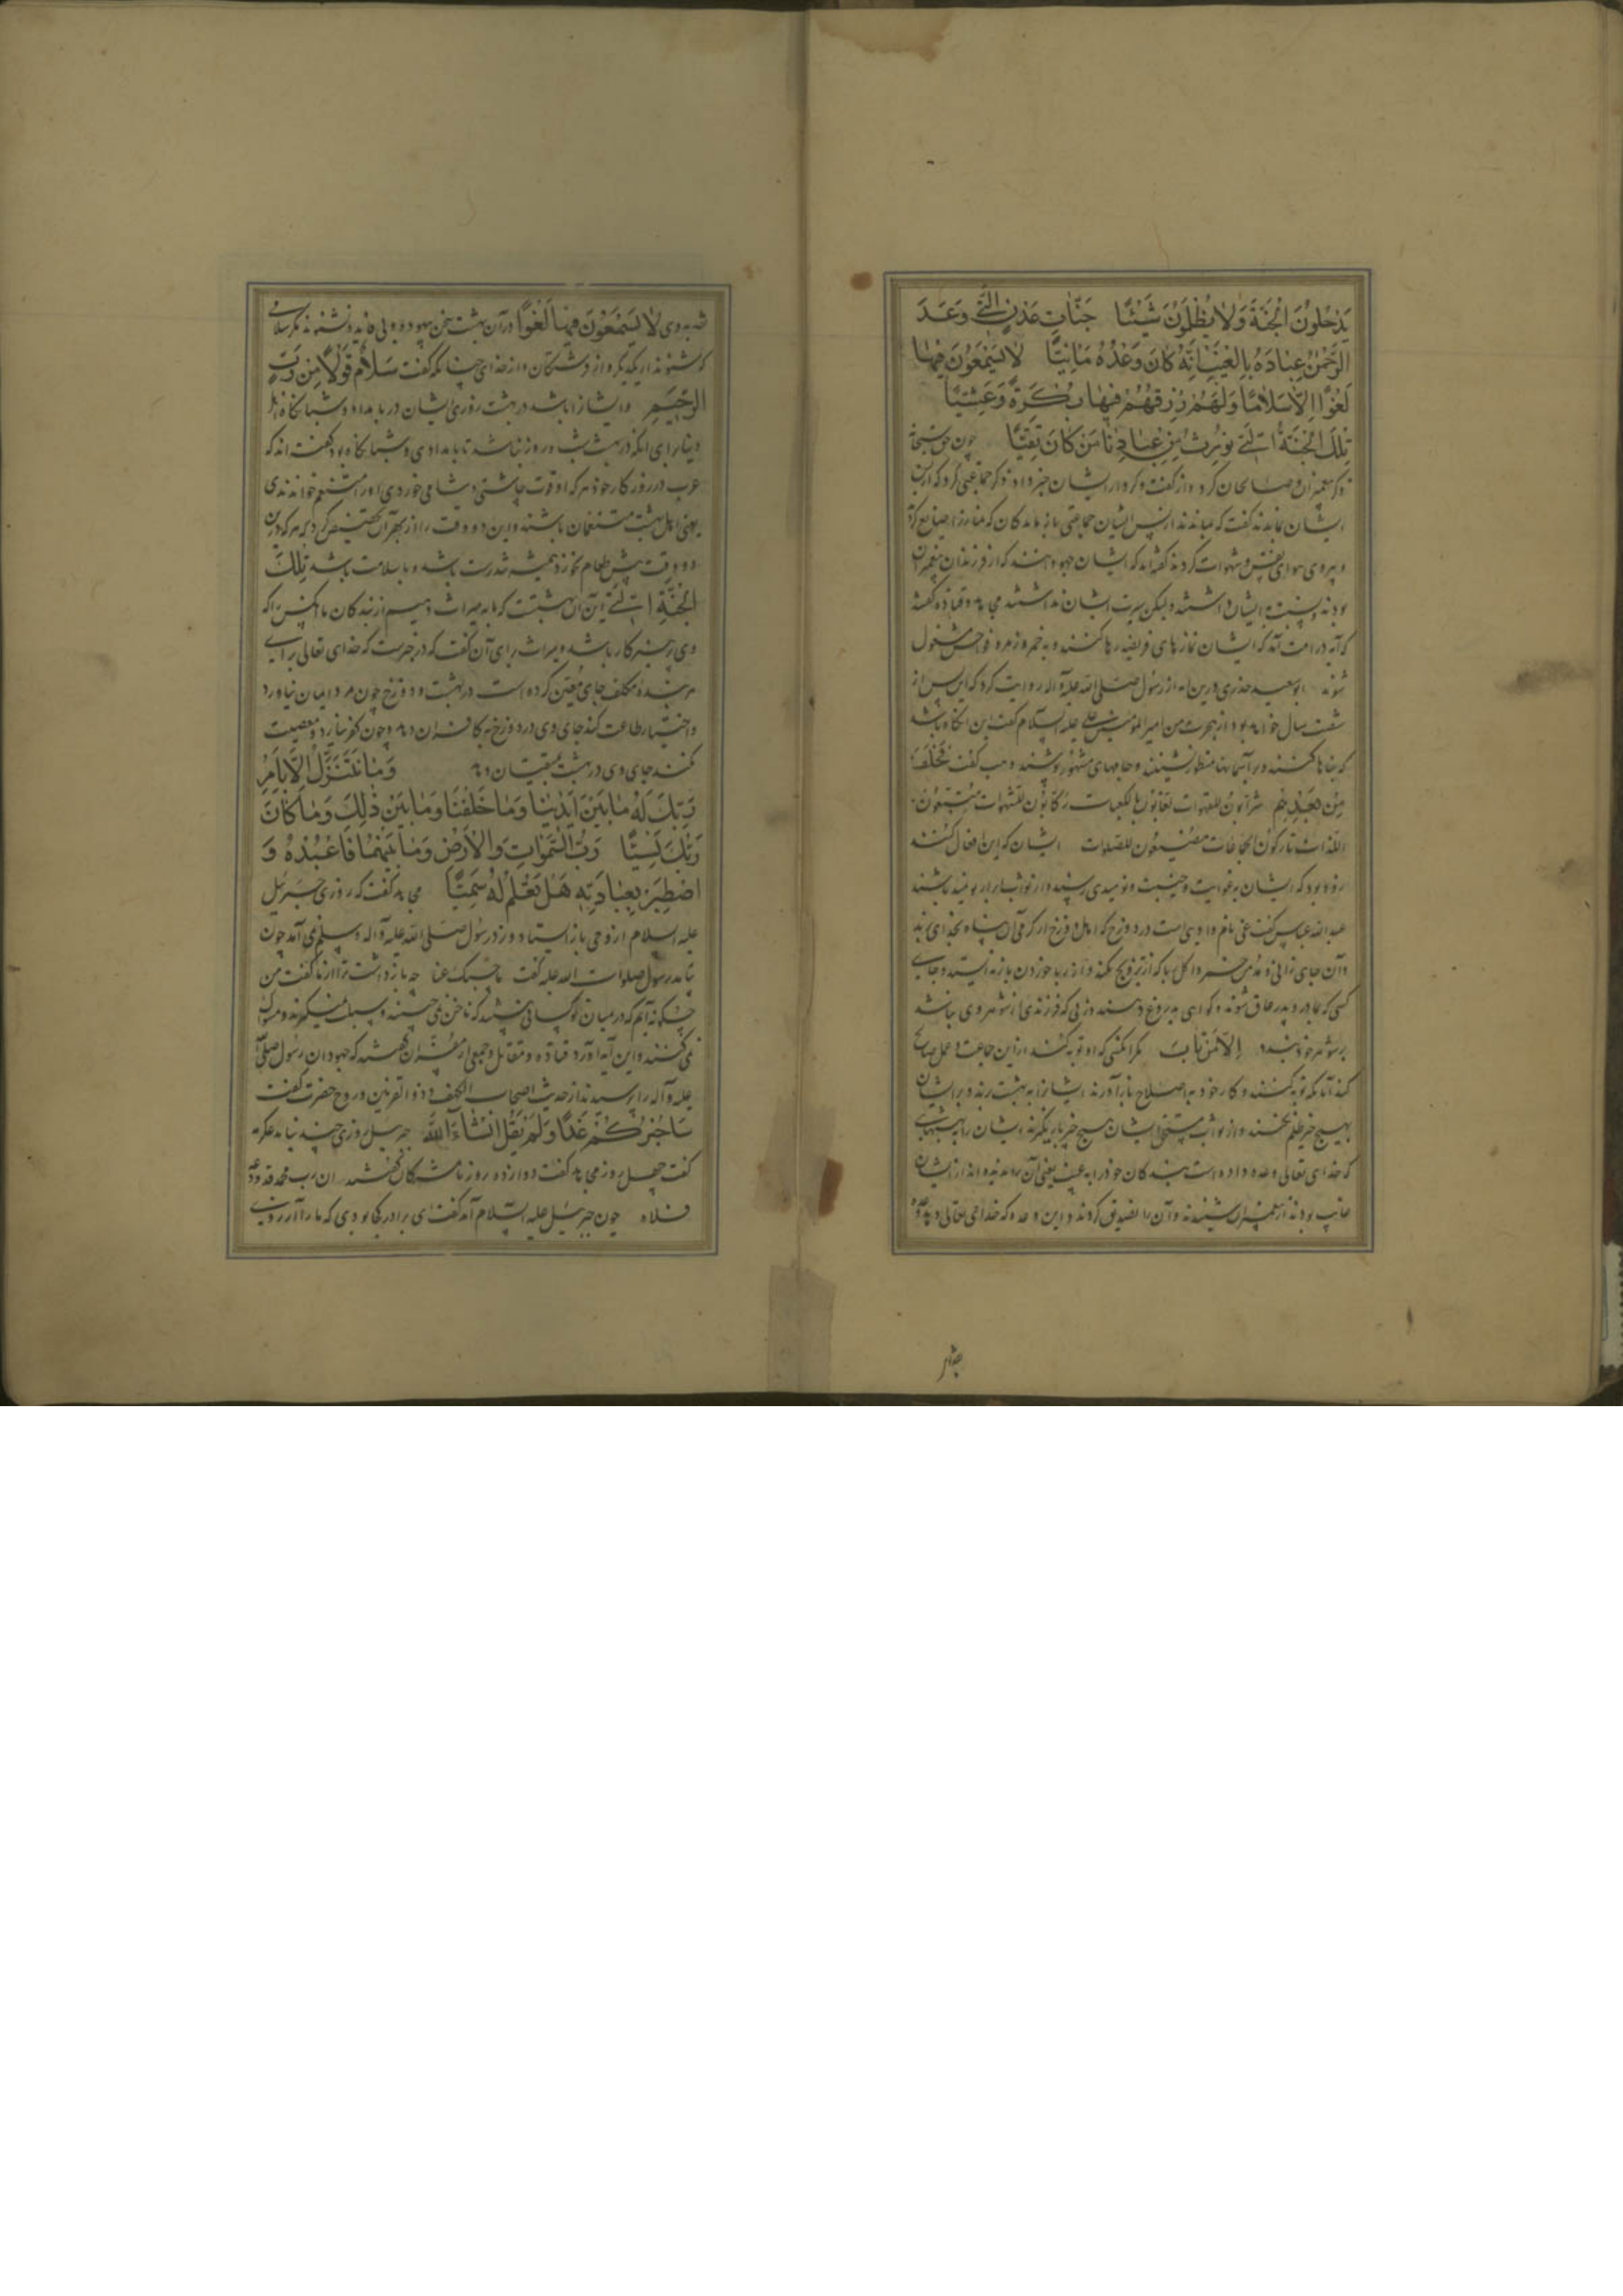 يَدْخُلُونَ الْجَنَّةَ وَلَا يُظْلَمُونَ شَيْئًا جَنَّاتِ عَدْنٍ الَّتِي وَعَدَ
الرَّحْمٰنُ عِبَادَهُ بِالْغَيْبِ اِنَّهُ كَانَ وَعْدُهُ مَأْتِيًّا لَا يَسْمَعُونَ فِيهَا
لَغْوًا اِلَّا سَلَامًا وَلَهُمْ رِزْقُهُمْ فِيهَا بُكْرَةً وَعَشِيًّا
تِلْكَ الْجَنَّةُ الَّتِي نُورِثُ مِنْ عِبَادِنَا مَنْ كَانَ تَقِيًّا چون حق سبحانه
ذکر پیغمبران و صالحان کرد و از گفت و کردار ایشان خبر داد ذکر جماعتی کرد که از پس
ایشان بماندند گفت که بماندند از پس ایشان جماعتی باز ماندگان که نماز را ضایع کردند
و پیروی هوای نفس و شهوات کردند گفته‌اند که ایشان جهودانند که از فرزندان پیغمبران
بودند و نسبت ایشان داشتند ولیکن سیرت ایشان نداشتند مجاهد و قتاده گفتند
که آیه در امت آمد که ایشان نمازهای فریضه رها کنند و به خمر و زمر و فواحش مشغول
شوند ابو سعید خدری درین آیه از رسول صلی الله علیه وآله روایت کرد که این پس از
شصت سال خواهد بود از هجرت من امیر المؤمنین علی علیه السلام گفت این آنگاه باشد
که بناها کنند و بر آسمانها منظور نشینند و جامهای مشهور پوشند وهب گفت فَخَلَفَ
مِنْ بَعْدِهِمْ شرابون للقهوات لعابون بالکعبات رکابون للشهوات متبعون
اللذات تارکون الجماعات مضیعون للصلوات ایشان که این افعال کنند
زود بود که ایشان به غوایت و خیبت و نومیدی رسند و از ثواب ابرار نومید باشند
عبد الله عباس گفت غی نام وادی است در دوزخ که اهل دوزخ از گرمی آن پناه بخدای برند
و آن جای زانی و مدمن خمر و آکل ربا که از ترویج نکند و از ربا خوردن باز نایستد و جای
کسی که بمادر و پدر عاق شوند و گواهی به دروغ دهند و زنی که فرزندی از شوهر وی نباشد
بر شوهر خود بندد اِلَّا مَنْ تَابَ مگر آنکسی که او توبه کند از این جماعت و عمل صالح
کند آنانکه توبه کنند و کار خود به اصلاح باز آورند ایشانرا به بهشت برند و بر ایشان
بهیچ چیز ظلم نکنند و از ثواب مستحق ایشان هیچ چیز باز نگیرند ایشان را به بهشتهای
که خدای تعالی وعده داده است بندگان خود را به غیب یعنی آن را ندیده‌اند از ایشان
غایب بودند از پیغمبران شنیدند و آن را تصدیق کردند و این وعده که خدای تعالی دهد
چدار
لَا يَسْمَعُونَ فِيهَا لَغْوًا در آن بهشت سخن بیهوده و بی فایده نشنوند مگر سلامی
که شنوند از یکدیگر و از فرشتگان و از خدای چنانکه گفت سَلَامٌ قَوْلًا مِنْ رَبٍّ
الرَّحِيمِ و ایشانرا باشد در بهشت روزی ایشان در بامداد و شبانگاه اهل
دنیا برای آنکه در بهشت شب و روز نباشد تا بامدادی و شبانگاه بود گفته‌اند که
عرب در روزگار خود هر که او قوت چاشتی و شامی خوردی او را متنعم خواندندی
یعنی اهل بهشت متنعمان باشند و این دو وقت را از بهر آن تخصیص کرد که هر که درین
دو وقت پیش طعام نخورد همیشه تندرست باشد و با سلامت باشد تِلْكَ
الْجَنَّةُ الَّتِي این آن بهشتست که ما به میراث دهیم از بندگان ما آنکس را که
وی پرهیزگار باشد و میراث برای آن گفت که در خبرست که خدای تعالی برای
هر بنده مکلف جای معین کرده است در بهشت و دوزخ چون مرد ایمان نیاورد
و اختیار طاعت کند جای وی در دوزخ به کافران دهد و چون کفر نیارد و معصیت
نکند جای وی در بهشت به متقیان دهد وَمَا نَتَنَزَّلُ اِلَّا بِاَمْرِ
رَبِّكَ لَهُ مَا بَيْنَ اَيْدِينَا وَمَا خَلْفَنَا وَمَا بَيْنَ ذٰلِكَ وَمَا كَانَ
رَبُّكَ نَسِيًّا رَبُّ السَّمٰوَاتِ وَالْاَرْضِ وَمَا بَيْنَهُمَا فَاعْبُدْهُ وَ
اصْطَبِرْ لِعِبَادَتِهِ هَلْ تَعْلَمُ لَهُ سَمِيًّا مجاهد گفت که روزی جبرئیل
علیه السلام از وحی باز ایستاد و زد رسول صلی الله علیه وآله وسلم نمی آمد چون
بیامد رسول صلوات الله علیه گفت ما حبسک عنا چه باز داشت ترا از ما گفت من
چگونه آیم که در میان تو کسانی باشند که ناخن نمی چینند و سبلت نمیگیرند و مسواک
نمی کنند و این آیه آورد قتاده و مقاتل و جمعی از مفسران گفتند که جهودان رسول صلی الله
علیه وآله را پرسیدند از حدیث اصحاب الکهف و ذو القرنین و روح حضرت گفت
سَاُخْبِرُكُمْ غَدًا وَلَمْ يَقُلْ اِنْ شَاءَ اللّٰهُ جبرئیل روزی چند نیامد عکرمه
گفت چهل روز مجاهد گفت دوازده روز تا مشرکان گفتند ان رب محمد قد ودعه
وقلاه چون جبرئیل علیه السلام آمد گفت ای برادر کجا بودی که ما را آرزوی